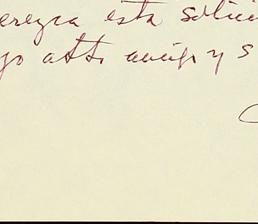 erezca esta solici
go atto amigo y s